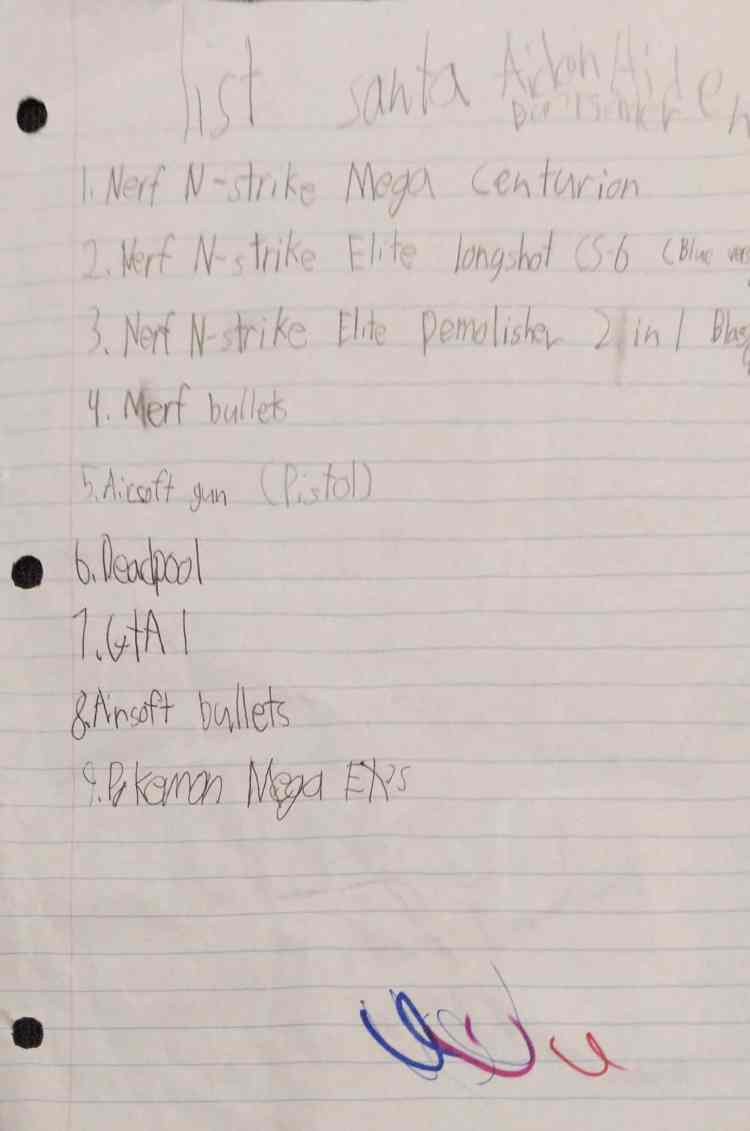 list santa
1. Nerf N-strike Mega Centurion
2. Nerf N-strike Elite longshot CS-6 (Blue vers
3. Nerf N-strike Elite Demolisher 2 in 1 Blas
4. Nerf bullets
5. Airsoft gun (Pistol)
6. Deadpool
7. GtA 1
8. Airsoft bullets
9. Pokemon Mega EX's